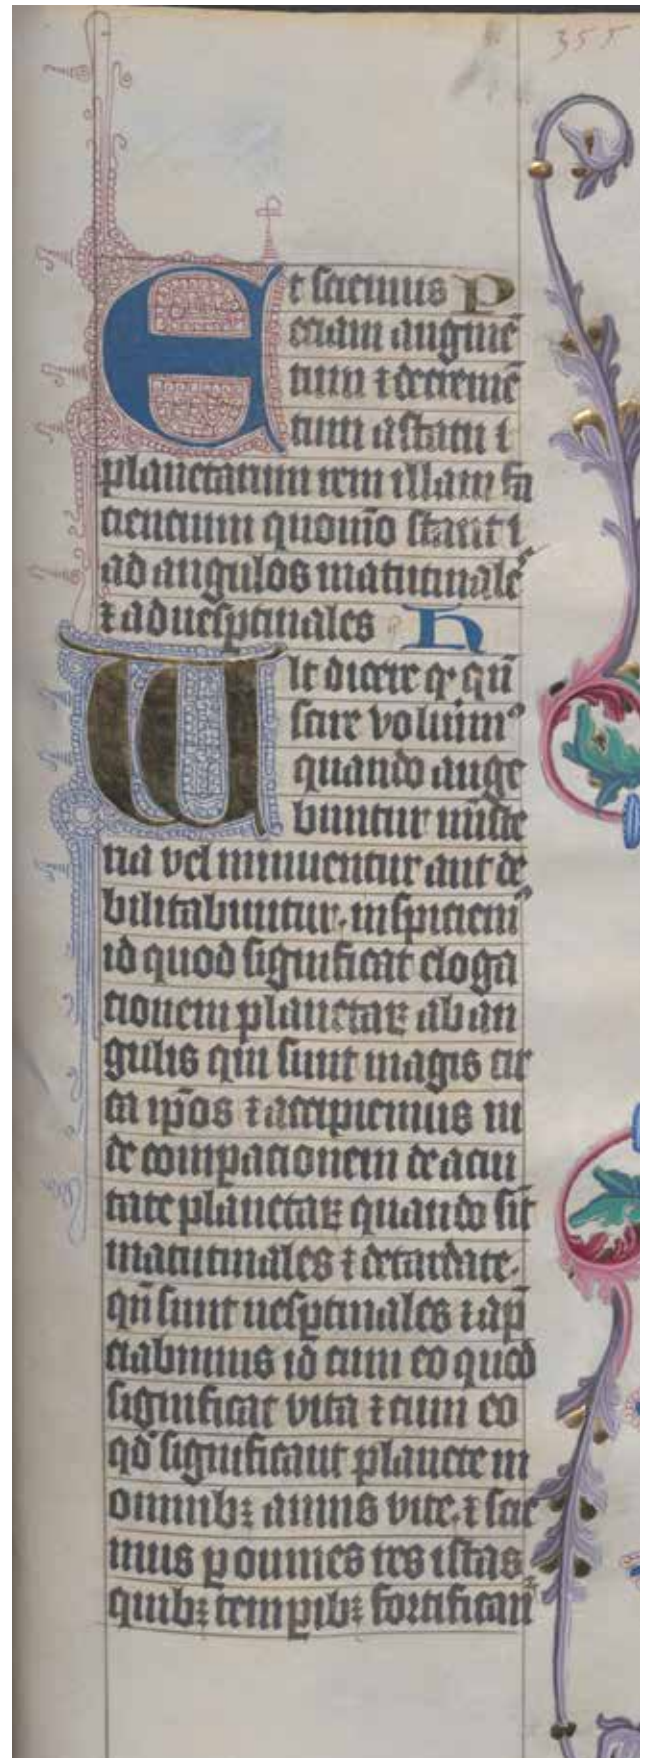 355
Et sciemus P
etiam augmē
tum ⁊ decremē
tum a statu i
planetarum rem illam fa
cientium quomō stant i
ad angulos matutinaleˢ
⁊ ad uesꝑtinales H
Wlt dicere ꝙ qn̄
scire volumꝰ
quando auge
buntur
ria vel minuentur aut de
bilitabuntur. inspiciemꝰ
id quod significat eloga
tionem planetaꝝ ab an
gulis qui sunt magis cir
ca ip̄os ⁊ accipiemus in
de comꝑationem de acui
tate planetaꝝ quando sūt
matutinales ⁊ de tardate.
qn̄ sunt uesꝑtinales ⁊ ap̄
ciabimus id cum eo quod
significat vita ⁊ cum eo
qd̓ significant planete in
omnibꝫ annis vite. ⁊ scie
mus ꝑ omnes res istas
quibꝫ temꝑibꝫ fortificanᷣ